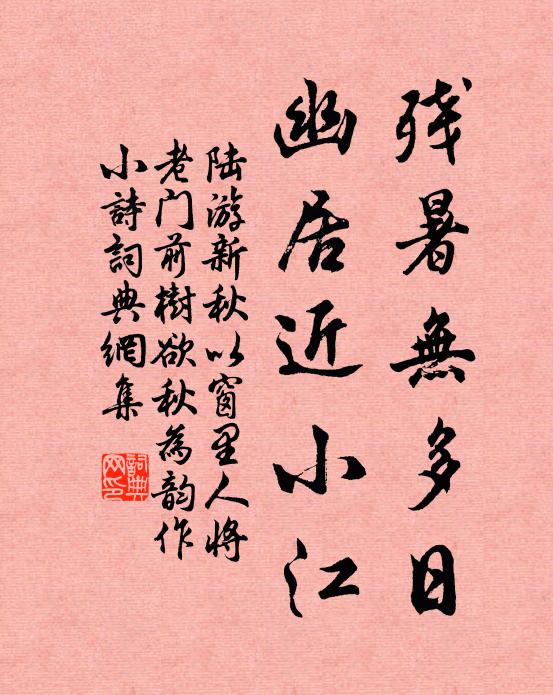 残暑無多日
幽居近小江
陆游新秋以窗里人将
老门前樹欲秋為韵作
小詩詞典網集
詞典网印